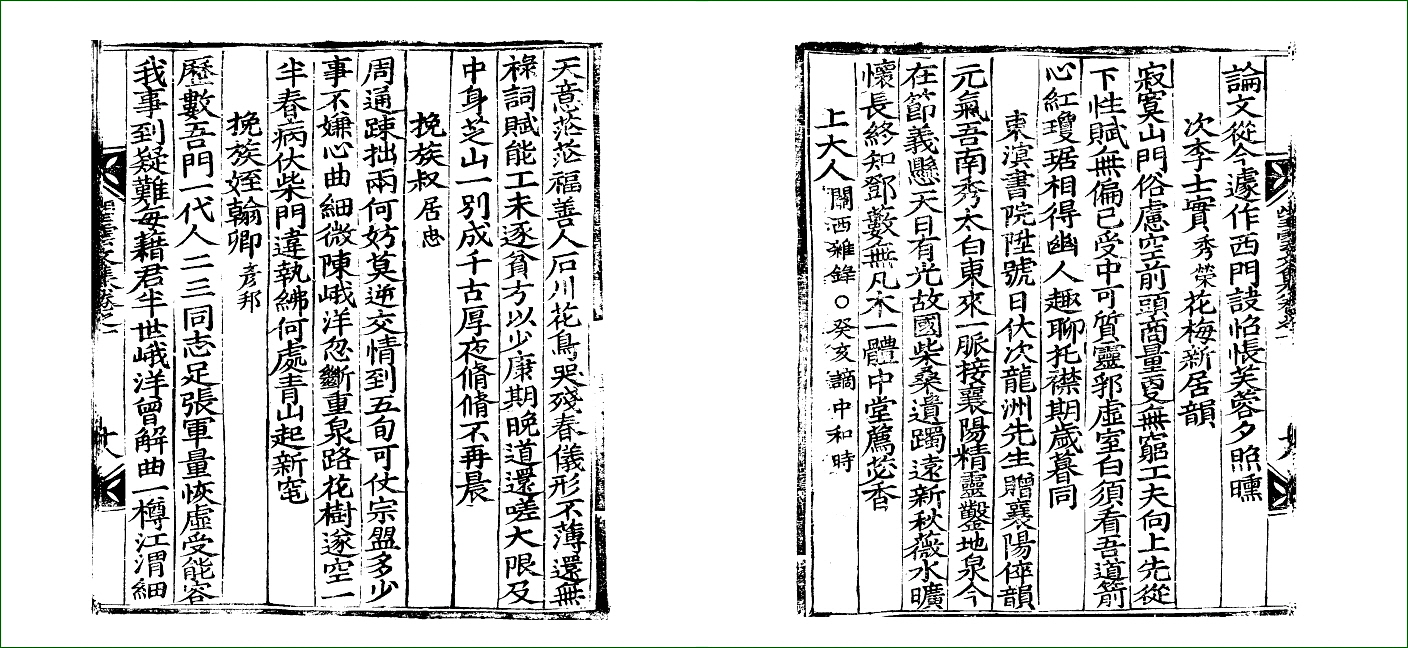 論文從今遽作西門訣怊悵芙蓉夕照曛
次李士實秀榮花梅新居韻
寂寞山門俗慮空前頭商量更無窮工夫向上先從
下性賦無偏已受中可質靈郭虛室白須看吾道箭
心紅瓊琚相得幽人趣聊托襟期歲暮同
東滇書院陞號日伏次龍洲先生贈襄陽倅韻
元氣吾南秀太白東來一脈接襄陽精靈鑿地泉今
在節義懸天日有光故國柴桑遺躅遠新秋薇水曠
懷長終知鄧藪無凡木一體中堂薦苾香
上大人闡洒雜錄○癸亥謫中和時
天意茫茫福善人石川花鳥哭殘春儀形不薄還無
祿詞賦能工未逐貧方以少康期晚道還嗟大限及
中身芝山一別成千古厚夜翛翛不再晨
挽族叔居忠
周通踈拙兩何妨莫逆交情到五旬可仗宗盟多少
事不嫌心曲細微陳峨洋忽斷重泉路花樹遂空一
半春病伏柴門違執紼何處青山起新窀
挽族姪翰卿彥邦
歷數吾門一代人二三同志足張軍量恢虛受能容
我事到疑難每藉君半世峨洋曾解曲一樽江渭細
文集卷之一
十八